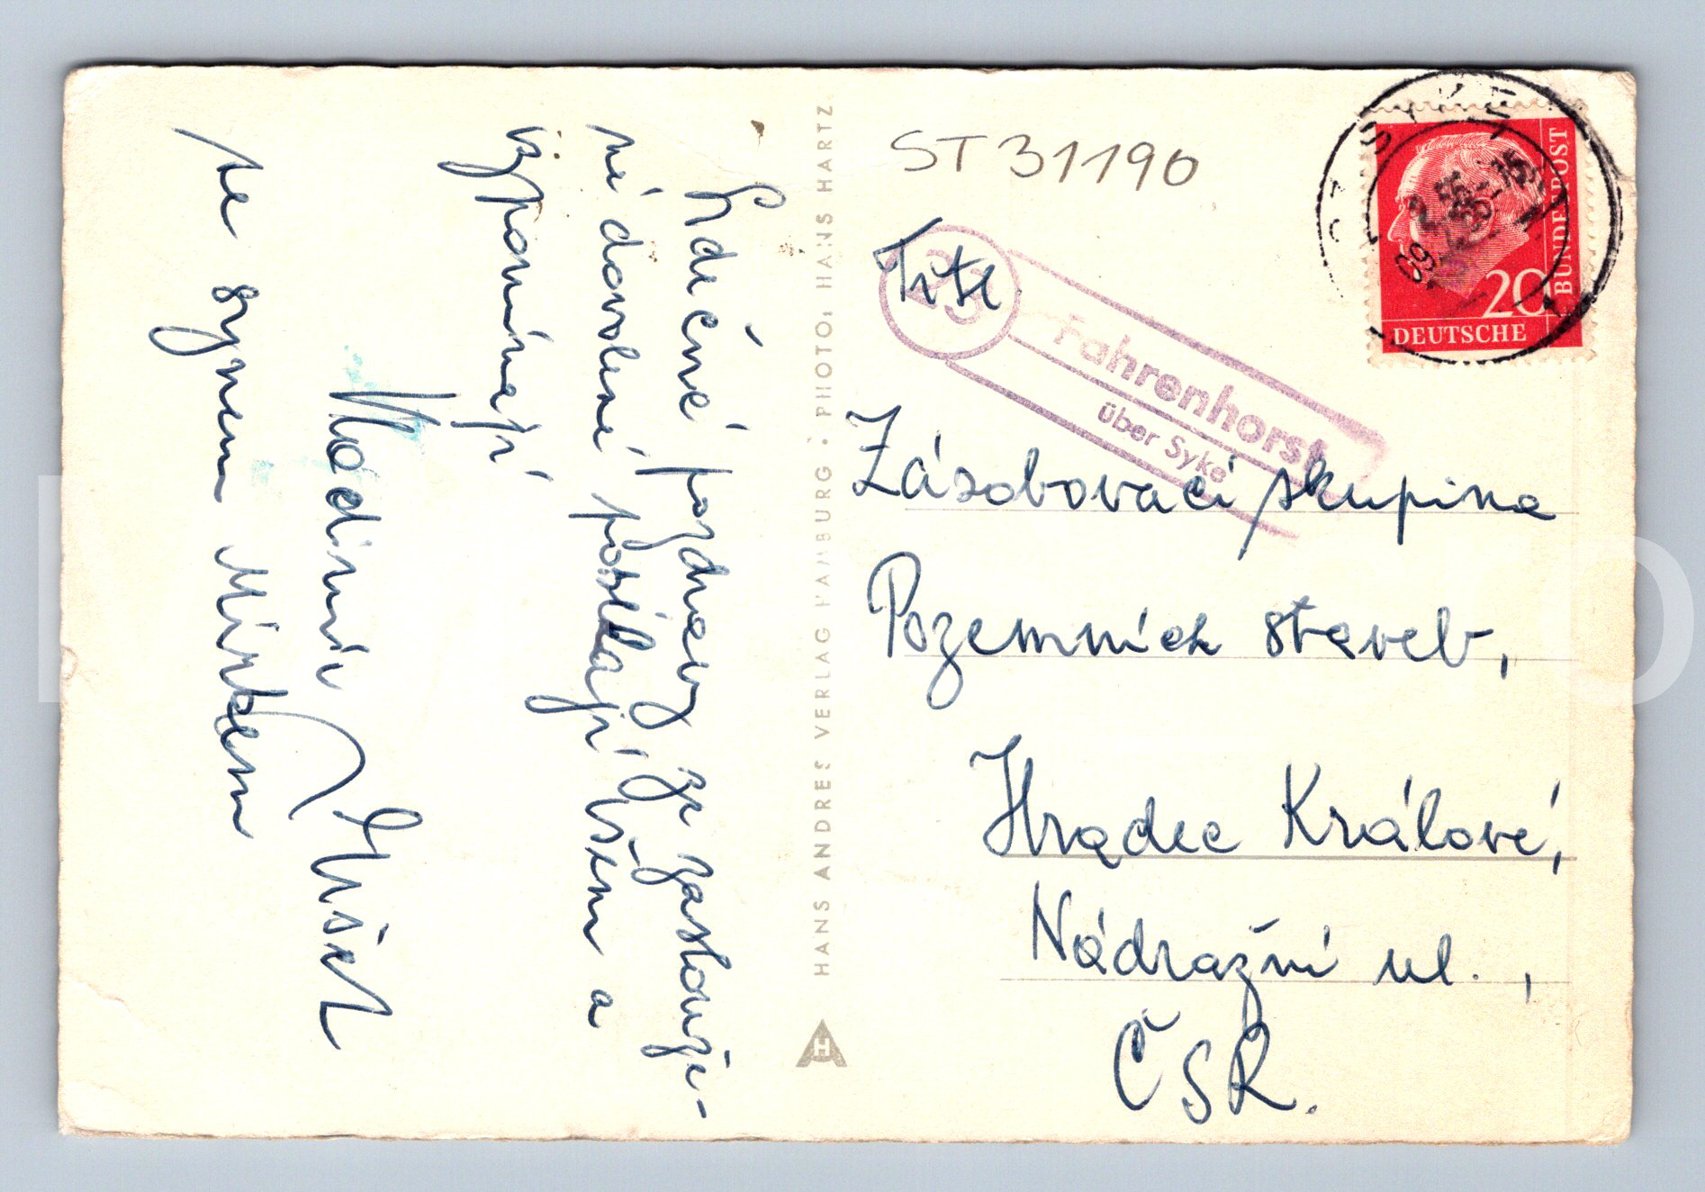 Srdečné pozdravy ze zaslouže-
né dovolené posílají všem a
vzpomínají
Vladimír
se synem Mirkem
HANS ANDRES VERLAG HAMBURG · PHOTO: HANS HARTZ
ST 31190
Zásobovací skupina
Pozemních staveb,
Hradec Králové,
Nádražní ul.,
ČSR.
23
Fahrenhorst
über Syke
SYKE
20
DEUTSCHE
BUNDESPOST